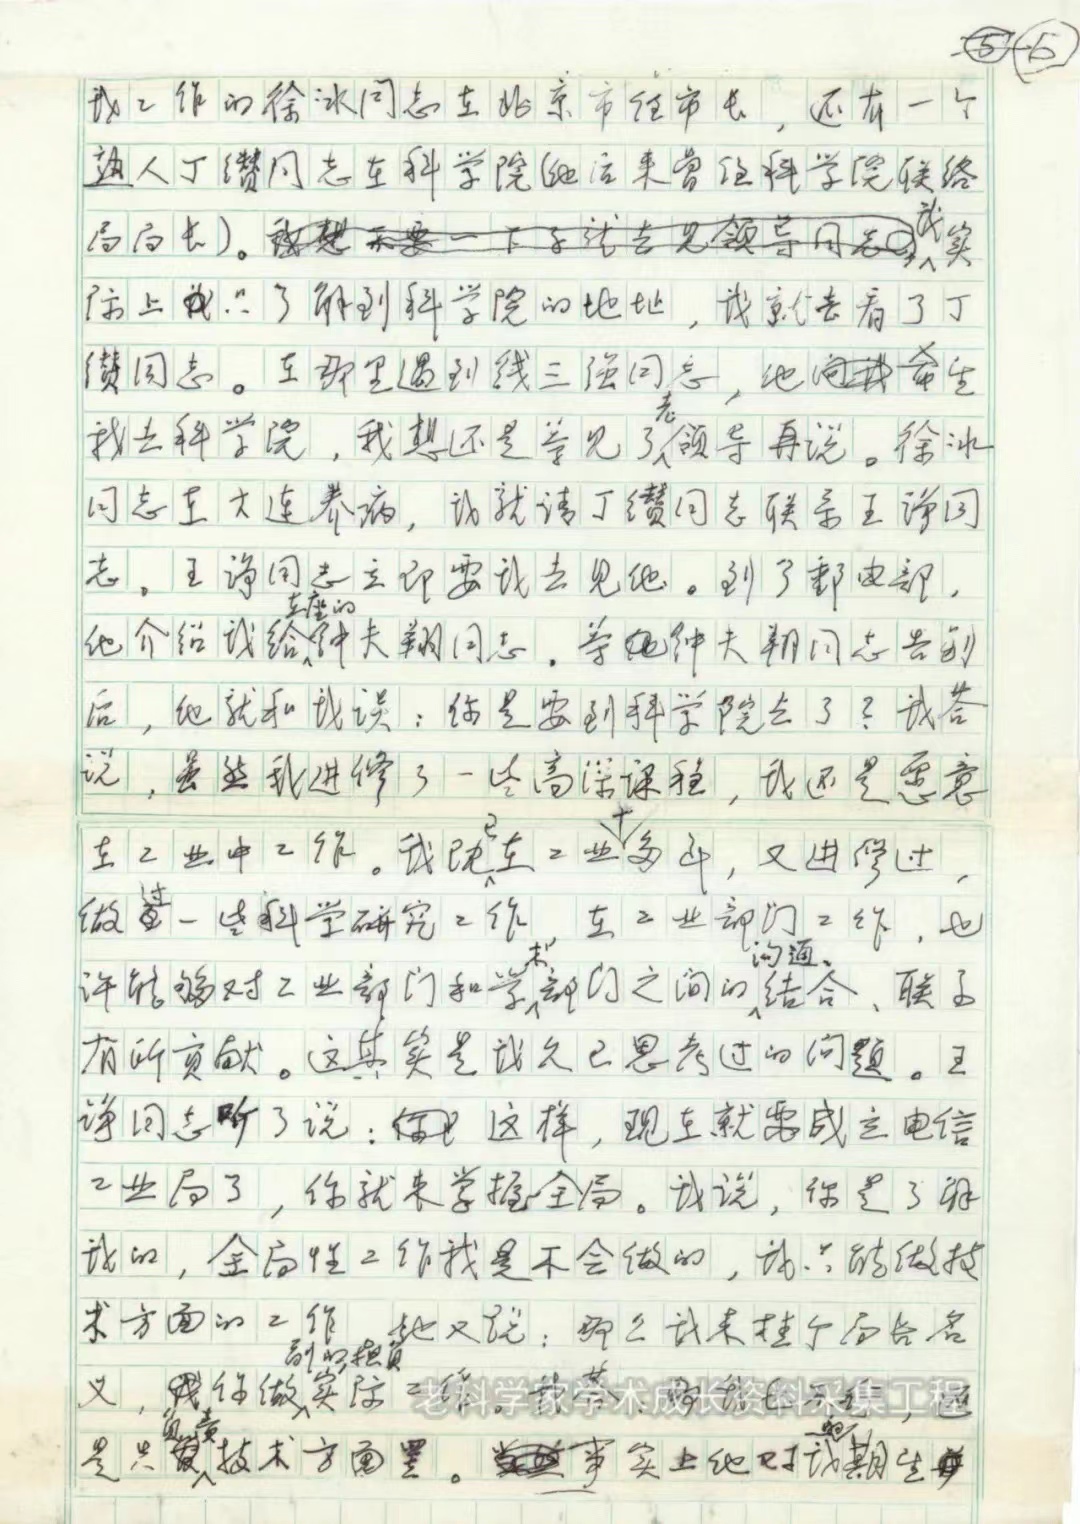 5 5
我工作的徐冰同志在北京市任市长，还有一个
熟人丁瓒同志在科学院(他后来曾任科学院联络
局局长)。我想不要一下子就去见领导同志，我实
际上只了解到科学院的地址，我就去看了丁
瓒同志。在那里遇到钱三强同志，他希望
我去科学院，我想还是等见了老领导再说。徐冰
同志在大连养病，我就请丁瓒同志联系王诤同
志。王诤同志立即要我去见他。到了邮电部，
他介绍我给在座的钟夫翔同志。等钟夫翔同志告别
后，他就和我谈：你是要到科学院去了？我答
说，虽然我进修了一些高深课程，我还是愿意
在工业中工作。我既已在工业十多年，又进修过，
做过一些科学研究工作，在工业部门工作，也
许能够对工业部门和学术部门之间的沟通、结合、联系
有所贡献。这其实是我久已思考过的问题。王
诤同志听了说：这样，现在就要成立电信
工业局了，你就来掌握全局。我说，你是了解
我的，全局性工作我是不会做的，我只能做技
术方面的工作。他又说：那么我来挂个局长名
义，你做副的，担负实际工作。我答：
是只负责技术方面罢。事实上他对我期望
老科学家学术成长资料采集工程